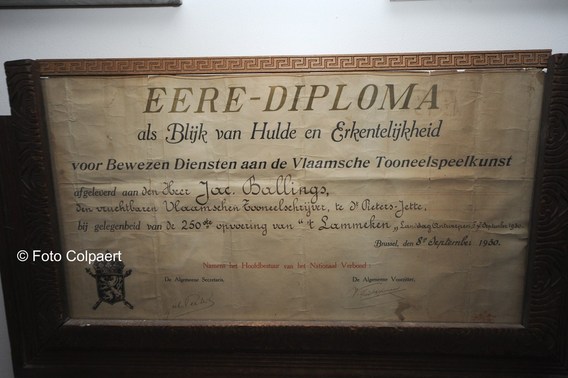 EERE-DIPLOMA
als Blijk van Hulde en Erkentelijkheid
voor Bewezen Diensten aan de Vlaamsche Tooneelspeelkunst
afgeleverd aan den Heer Jac. Ballings,
den vruchtbaren Vlaamschen Tooneelschrijver, te St Pieters-Jette,
bij gelegenheid van de 250ste opvoering van "'t Lammeken"
Brussel, den 8n September 1930.
Namens het Hoofdbestuur van het Nationaal Verbond:
De Algemeene Secretaris, De Algemeene Voorzitter,
© Foto Colpaert